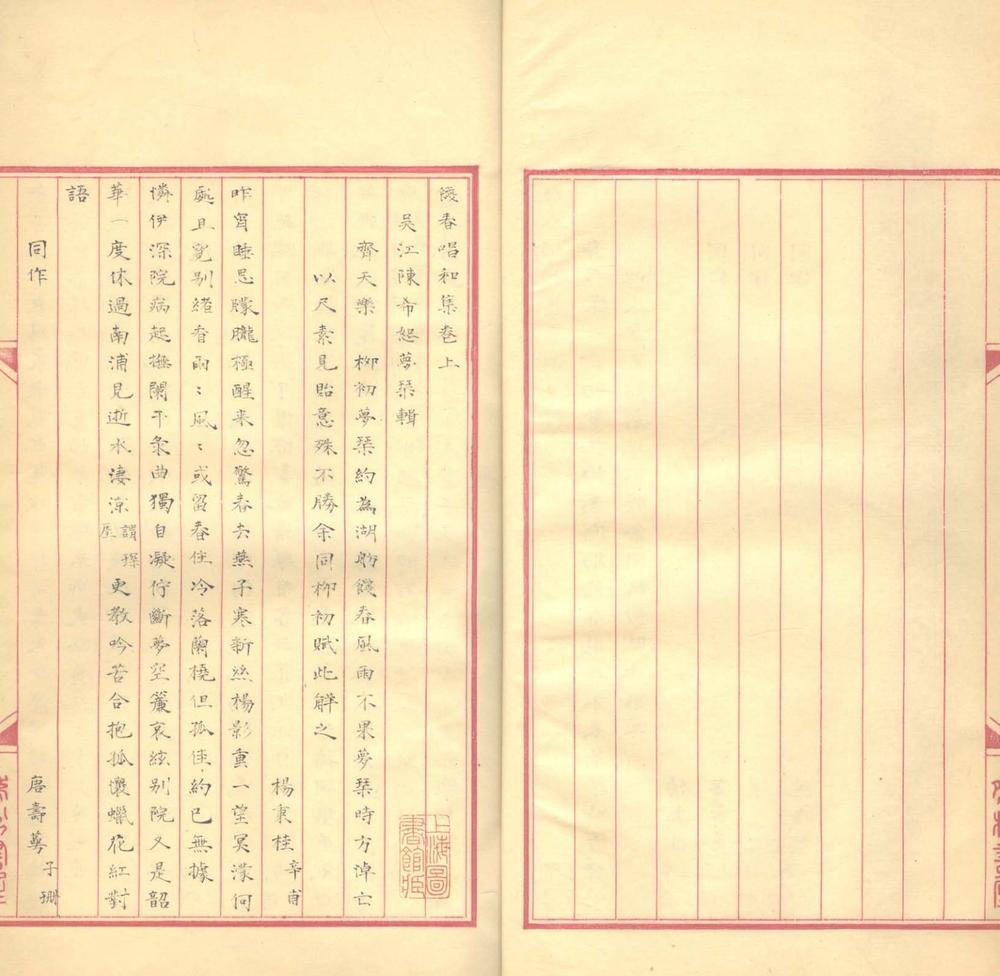 餞春唱和集卷上
吳江陳希恕夢琹輯
齊天樂 柳初夢琹約為湖舫餞春風雨不果夢琹時方悼亡
以尺素見貽意殊不勝余同柳初賦此解之
楊秉桂辛甫
昨宵睡思朦朧極醒来忽驚春去燕子寒新絲楊影重一望冥濛何
處且説别緒春雨〻風〻或留春住冷落蘭橈但孤佳約已無據
憐伊深院病起撫闌干曲獨自凝佇斷夢空簾哀絃别院又是韶
華一度休過南浦見逝水淒涼謂琛更教吟苦合抱孤懷蠟花紅對
語
同作
唐壽萼子珊
上海圖書館藏